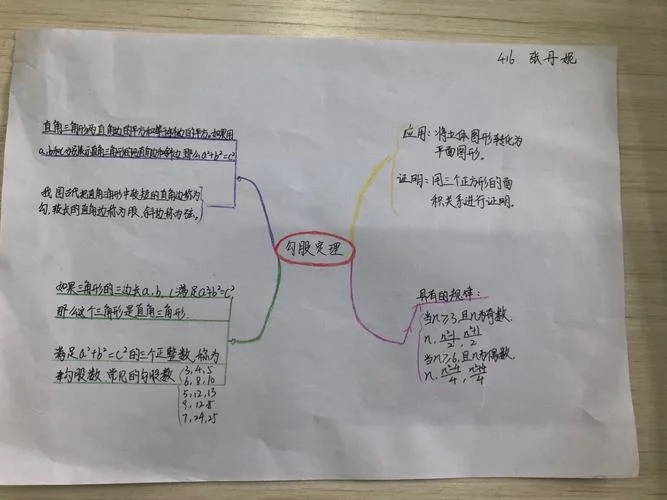 416 张丹妮
直角三角形两直角边的平方和等于斜边的平方。如果用
a,b和c分别表示直角三角形的两直角边和斜边,那么a²+b²=c²
我国古代把直角三角形中较短的直角边称为
勾,较长的直角边称为股,斜边称为弦。
应用:将立体图形转化为
平面图形。
证明:用三个正方形的面
积关系进行证明.
勾股定理
如果三角形的三边长a,b,c满足a²+b²=c²,
那么这个三角形是直角三角形.
满足a²+b²=c²的三个正整数,称为
勾股数,常见的勾股数
3,4,5
6,8,10
5,12,13
9,12,15
7,24,25
具有的规律:
当n≥3,且n为奇数,
n, n²-1/2, n²+1/2
当n≥6,且n为偶数,
n, n²-4/4, n²+4/4